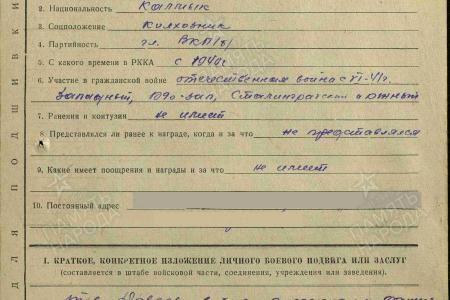 2. Национальность Калмык
3. Соцположение Колхозник
4. Партийность чл. ВКП/б/
5. С какого времени в РККА с 1940г
6. Участие в гражданской войне отечественная война с VI-41г.
Западный, Юго-зап, Сталинградский и южный
7. Ранения и контузии не имеет
8. Представлялся ли ранее к награде, когда и за что не представлялся
9. Какие имеет поощрения и награды и за что не имеет
10. Постоянный адрес
I. КРАТКОЕ, КОНКРЕТНОЕ ИЗЛОЖЕНИЕ ЛИЧНОГО БОЕВОГО ПОДВИГА ИЛИ ЗАСЛУГ
(составляется в штабе войсковой части, соединения, учреждения или заведения).
ПАМЯТЬ НАРОДА
ДЛЯ ПОДШИВКИ